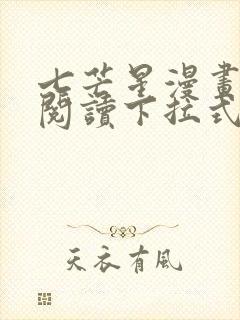 七芒星漫畫
閱讀下拉式
天衣有風